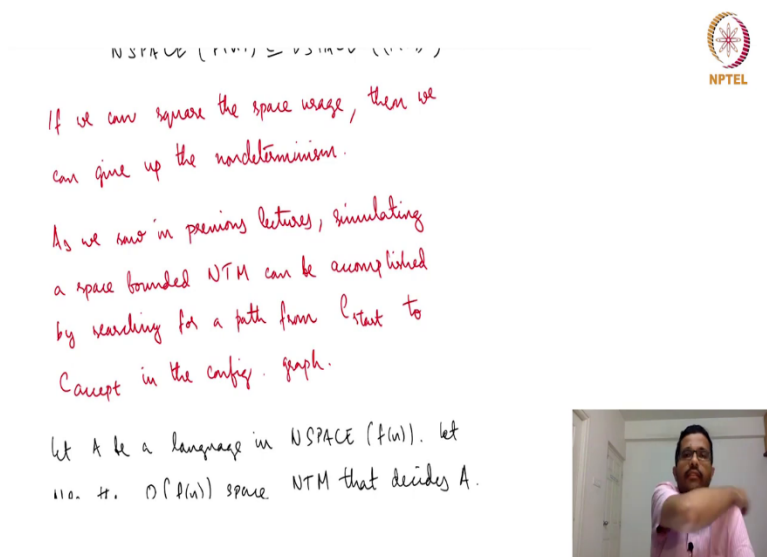 NPTEL
NSPACE
If we can square the space usage, then we
can give up the nondeterminism.
As we saw in previous lectures, simulating
a space bounded NTM can be accomplished
by searching for a path from Cstart to
Caccept in the config. graph.
Let A be a language in NSPACE (f(n)). Let
O(f(n)) space NTM that decides A.